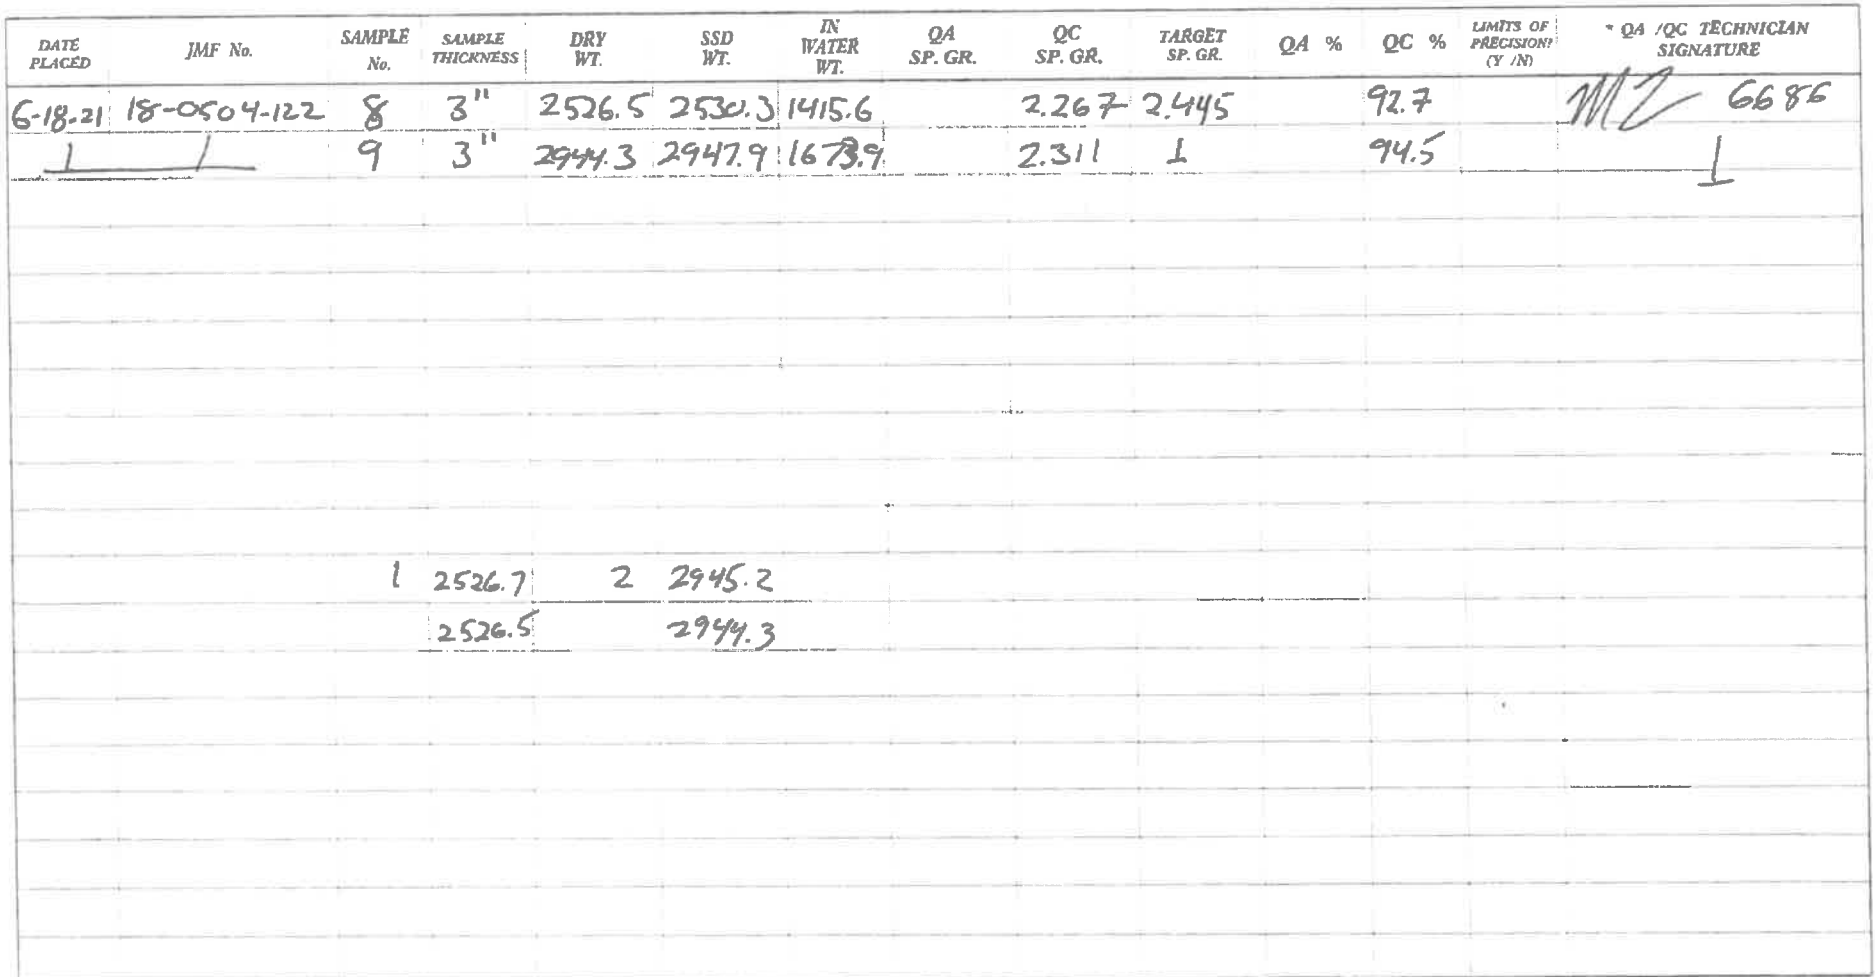 DATE PLACED JMF No. SAMPLE No. SAMPLE THICKNESS DRY WT. SSD WT. IN WATER WT. QA SP. GR. QC SP. GR. TARGET SP. GR. QA % QC % LIMITS OF PRECISION? (Y /N) * QA /QC TECHNICIAN SIGNATURE
6-18-21 18-0504-122 8 3" 2526.5 2530.3 1415.6 2.267 2.445 92.7 MZ 6686
9 3" 2944.3 2947.9 1673.9 2.311 94.5
1 2526.7 2 2945.2
2526.5 2944.3